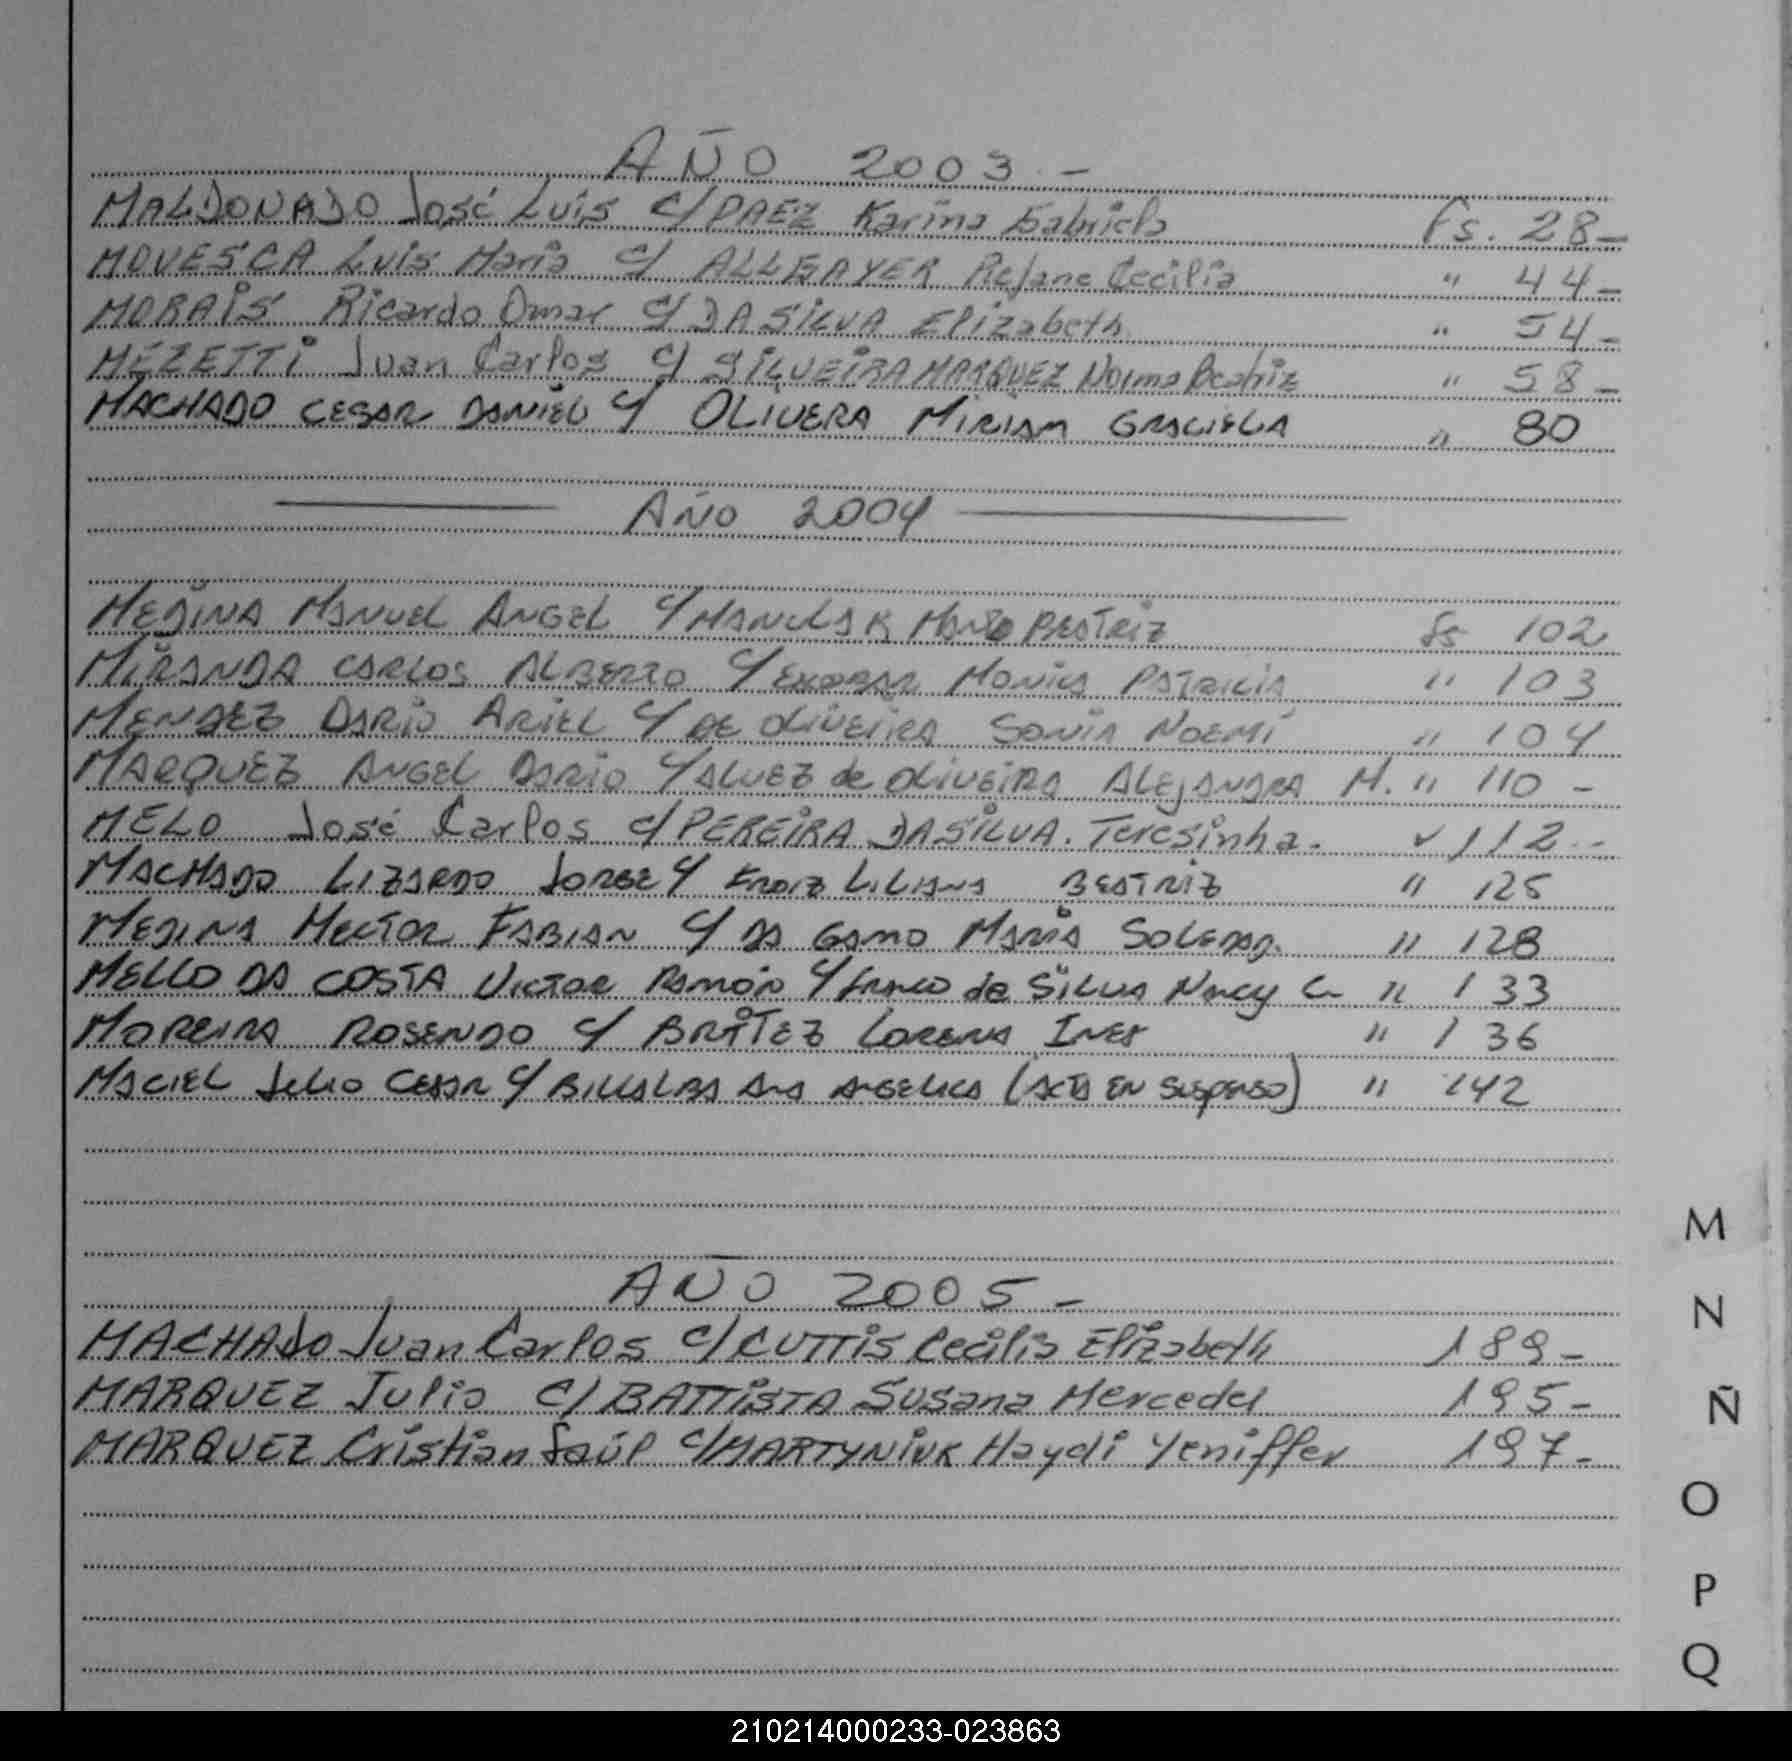 AÑO 2003.-
MALDONADO José Luis c/ PAEZ Karina Gabriela Fs. 28-
MOVESCA Luis Maria c/ ALLGAYER Rejane Cecilia " 44-
MORAIS Ricardo Omar c/ DA SILVA Elizabeth " 54-
MEZETTI Juan Carlos c/ SILVEIRA MARQUEZ Norma Beatriz " 58-
MACHADO CESAR DANIEL c/ OLIVERA MIRIAM GRACIELA " 80
AÑO 2004
MEDINA MANUEL ANGEL c/ BEATRIZ fs 102
MIRANDA CARLOS ALBERTO c/ MONICA PATRICIA " 103
MENDEZ DARIO ARIEL c/ DE OLIVEIRA SONIA NOEMÍ " 104
MARQUEZ ANGEL DARIO c/ ALVEZ de OLIVEIRA ALEJANDRA M. " 110 -
MELO José Carlos c/ PEREIRA DA SILVA. Teresinha. " 112.-
MACHADO LIZARDO JORGE c/ LILIANA BEATRIZ " 125
MEDINA HECTOR FABIAN c/ DA GAMO MARIA SOLEDAD. " 128
MELLO DA COSTA VICTOR RAMÓN c/ franco de SILVA Nancy G. " 133
MOREIRA ROSENDO c/ BRITEZ LORENA INES " 136
MACIEL JULIO CESAR c/ BILLALBA ANA ANGELICA (ACTA EN SUSPENSO) " 142
AÑO 2005-
MACHADO Juan Carlos c/ CUTTIS Cecilia Elizabeth 189-
MARQUEZ Julio c/ BATTISTA Susana Mercedes 195-
MARQUEZ Cristian Saúl c/ MARTYNIUK Haydi Yeniffer 197-
M
N
Ñ
O
P
Q
210214000233-023863